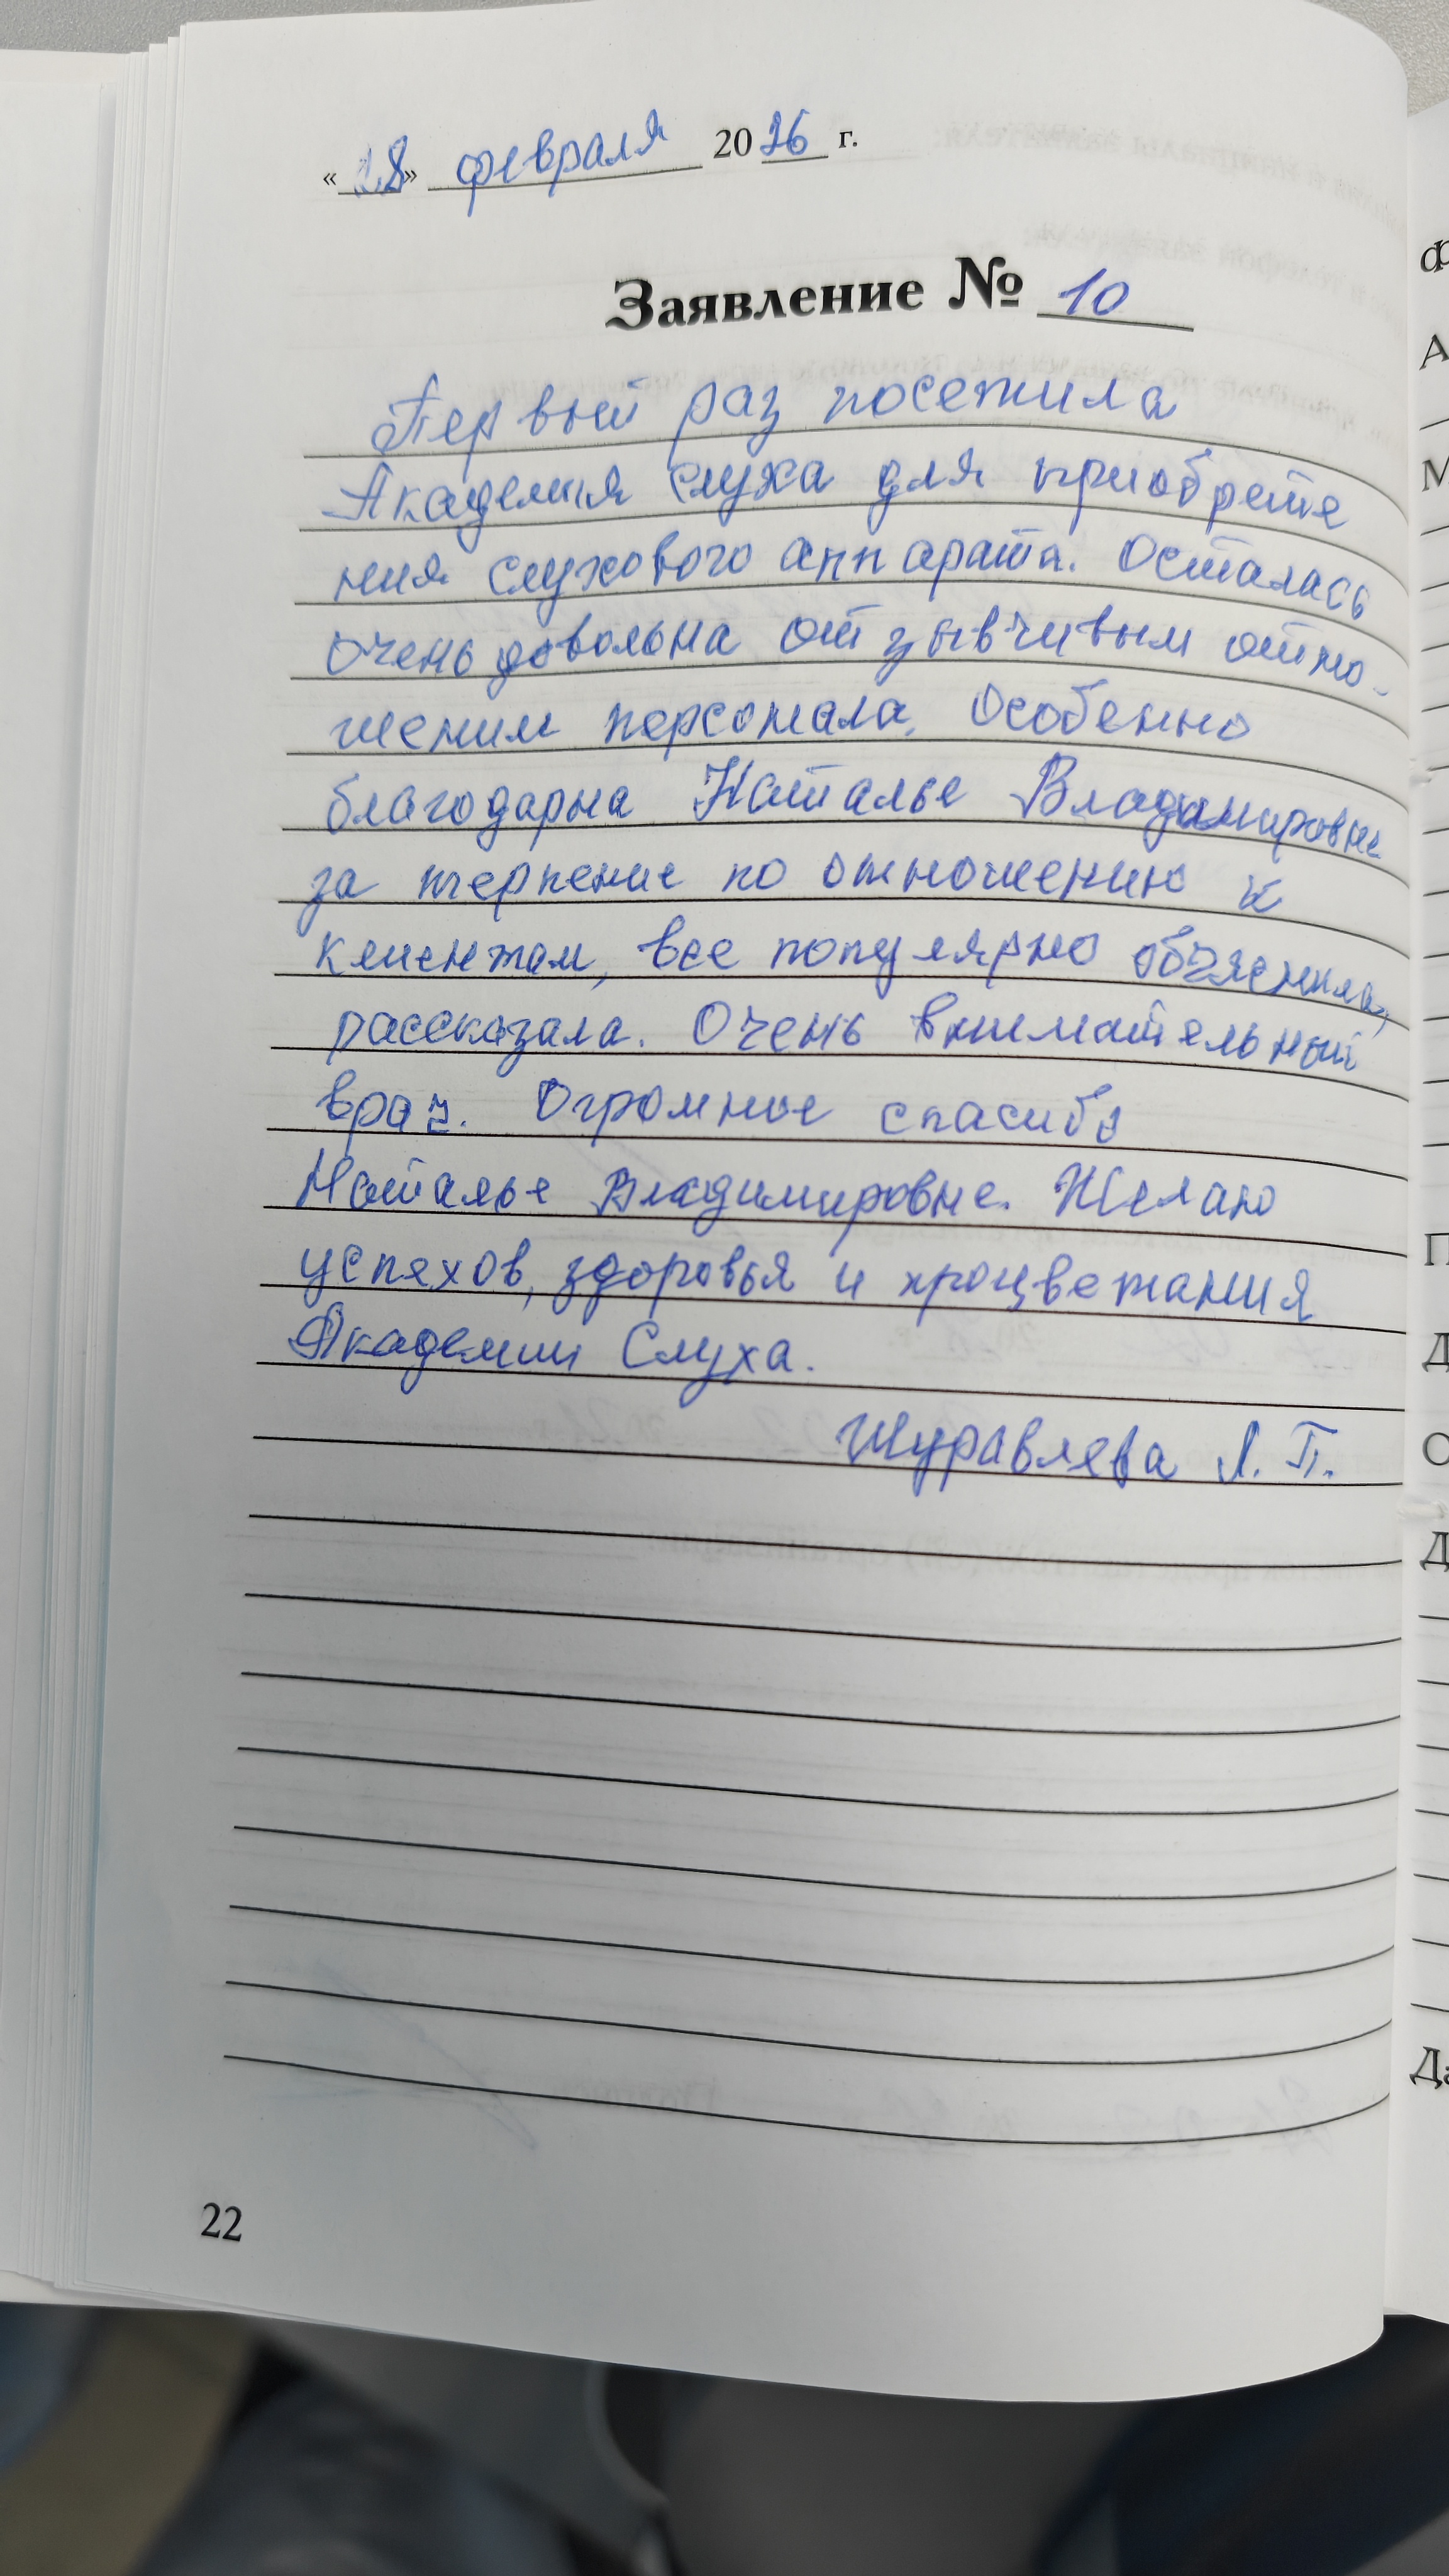 «28» февраля 2026 г.
Заявление № 10
Первый раз посетила
Академия слуха для приобрете
ния слухового аппарата. Осталась
очень довольна отзывчивым отно-
шеним персонала. Особенно
благодарна Наталье Владимировне
за терпение по отношению к
клиентам, все популярно объяснила,
рассказала. Очень внимательный
врач. Огромное спасибо
Наталье Владимировне. Желаю
успехов, здоровья и процветания
Академии Слуха.
Журавлева Л. П.
22